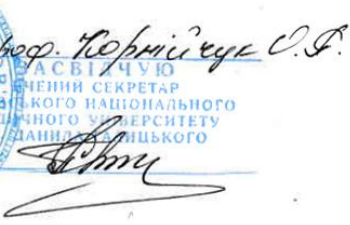 проф. Корнійчук О.Є.
ЗАСВІДЧУЮ
ЧЕНИЙ СЕКРЕТАР
СЬКОГО НАЦІОНАЛЬНОГО
ИЧНОГО УНІВЕРСИТЕТУ
ДАНИЛА ГАЛИЦЬКОГО